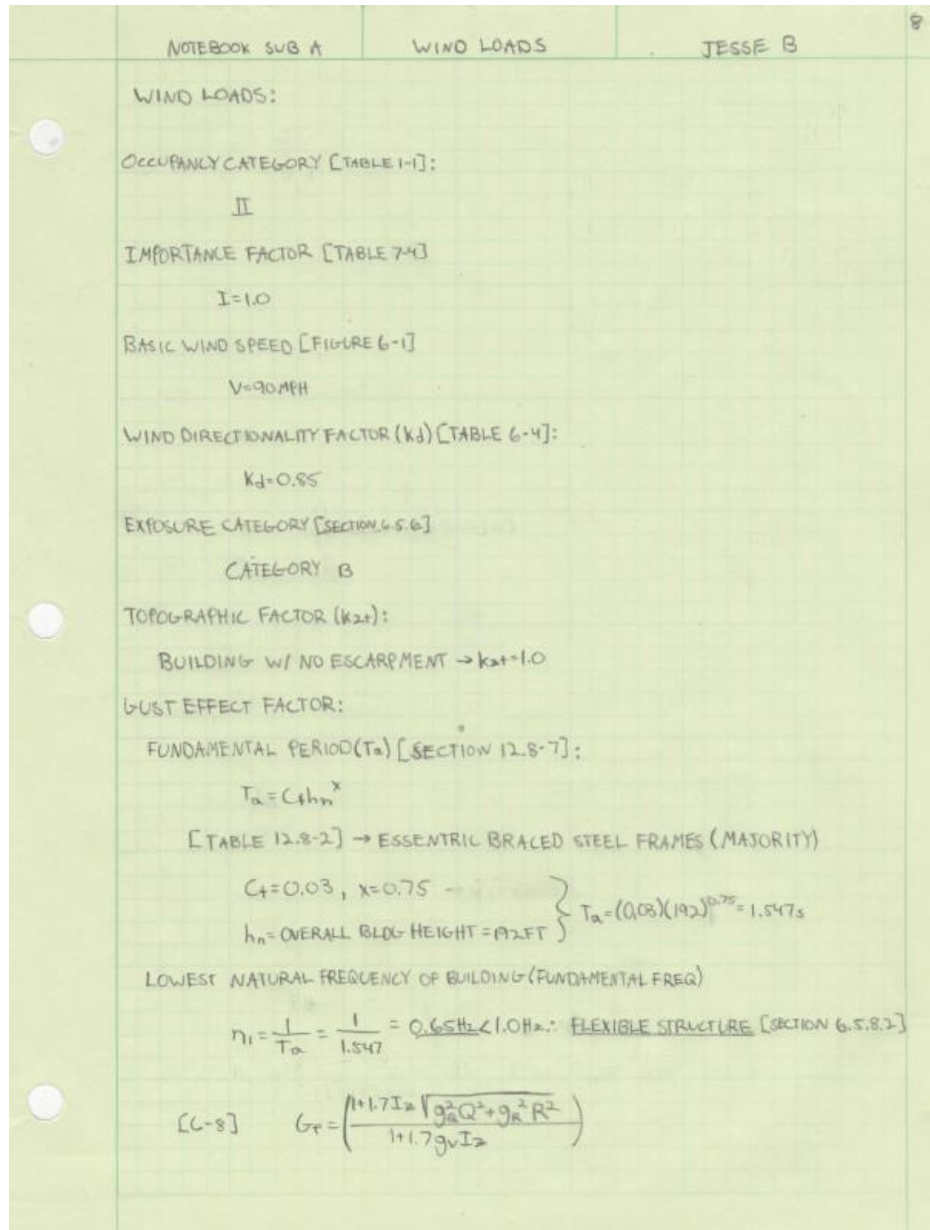 8
NOTEBOOK SUB A WIND LOADS JESSE B
WIND LOADS:
OCCUPANCY CATEGORY [TABLE 1-1]:
II
IMPORTANCE FACTOR [TABLE 7-4]
I=1.0
BASIC WIND SPEED [FIGURE 6-1]
V=90MPH
WIND DIRECTIONALITY FACTOR (Kd) [TABLE 6-4]:
Kd=0.85
EXPOSURE CATEGORY [SECTION 6.5.6]
CATEGORY B
TOPOGRAPHIC FACTOR (Kzt):
BUILDING W/ NO ESCARPMENT → Kzt=1.0
GUST EFFECT FACTOR:
FUNDAMENTAL PERIOD (Ta) [SECTION 12.8-7]:
Ta = Ct hn^x
[TABLE 12.8-2] → ESSENTRIC BRACED STEEL FRAMES (MAJORITY)
Ct=0.03, x=0.75
hn= OVERALL BLDG HEIGHT = 192FT } Ta=(0.03)(192)^0.75=1.547s
LOWEST NATURAL FREQUENCY OF BUILDING (FUNDAMENTAL FREQ)
n1 = 1/Ta = 1/1.547 = 0.65Hz < 1.0Hz ∴ FLEXIBLE STRUCTURE [SECTION 6.5.8.2]
[6-8] Gf = (1+1.7Iz √(gQ²Q²+gR²R²) / 1+1.7gvIz)